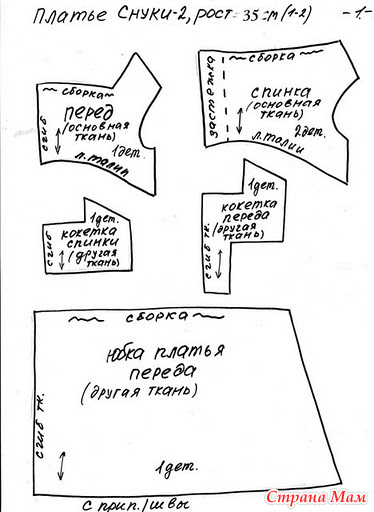 Платье Снуки-2, рост-35см (1-2) -1-
~ сборка ~
перед
(основная
ткань)
1дет.
сгиб
л. талии
застежка
~ сборка ~
спинка
(основная
ткань)
2дет.
л. талии
1дет.
кокетка
спинки
(другая
ткань)
сгиб
1дет.
кокетка
переда
(другая
ткань)
сгиб тк.
~ сборка ~
юбка платья
переда
(другая ткань)
сгиб тк.
1дет.
с прип./швы
Страна Мам